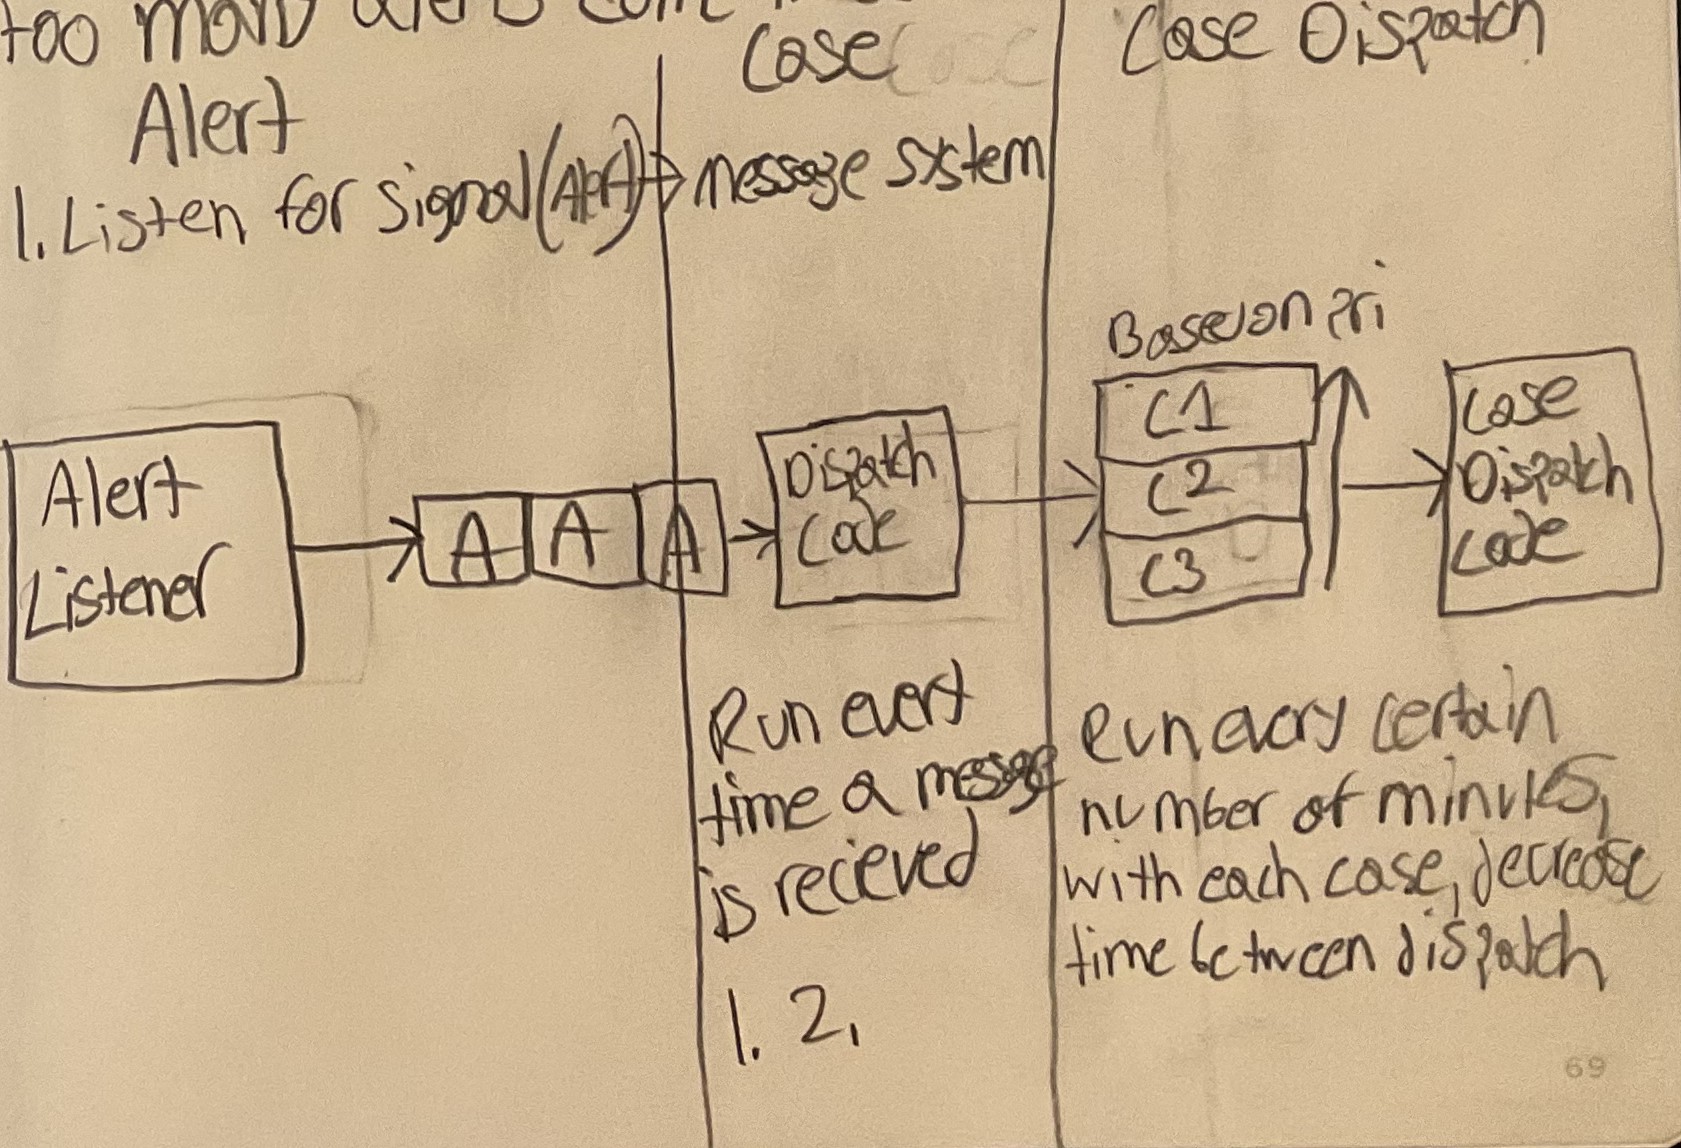 too many alerts com
Alert
1. Listen for signal (Alert)
Alert
Listener
A A A
Case Case
message system
Dispatch
Code
Run evert
time a message
is recieved
1. 2,
Case Dispatch
Based on pri
C1
C2
C3
Case
Dispatch
Code
Run every certain
number of minutes,
with each case, decrease
time between dispatch
69